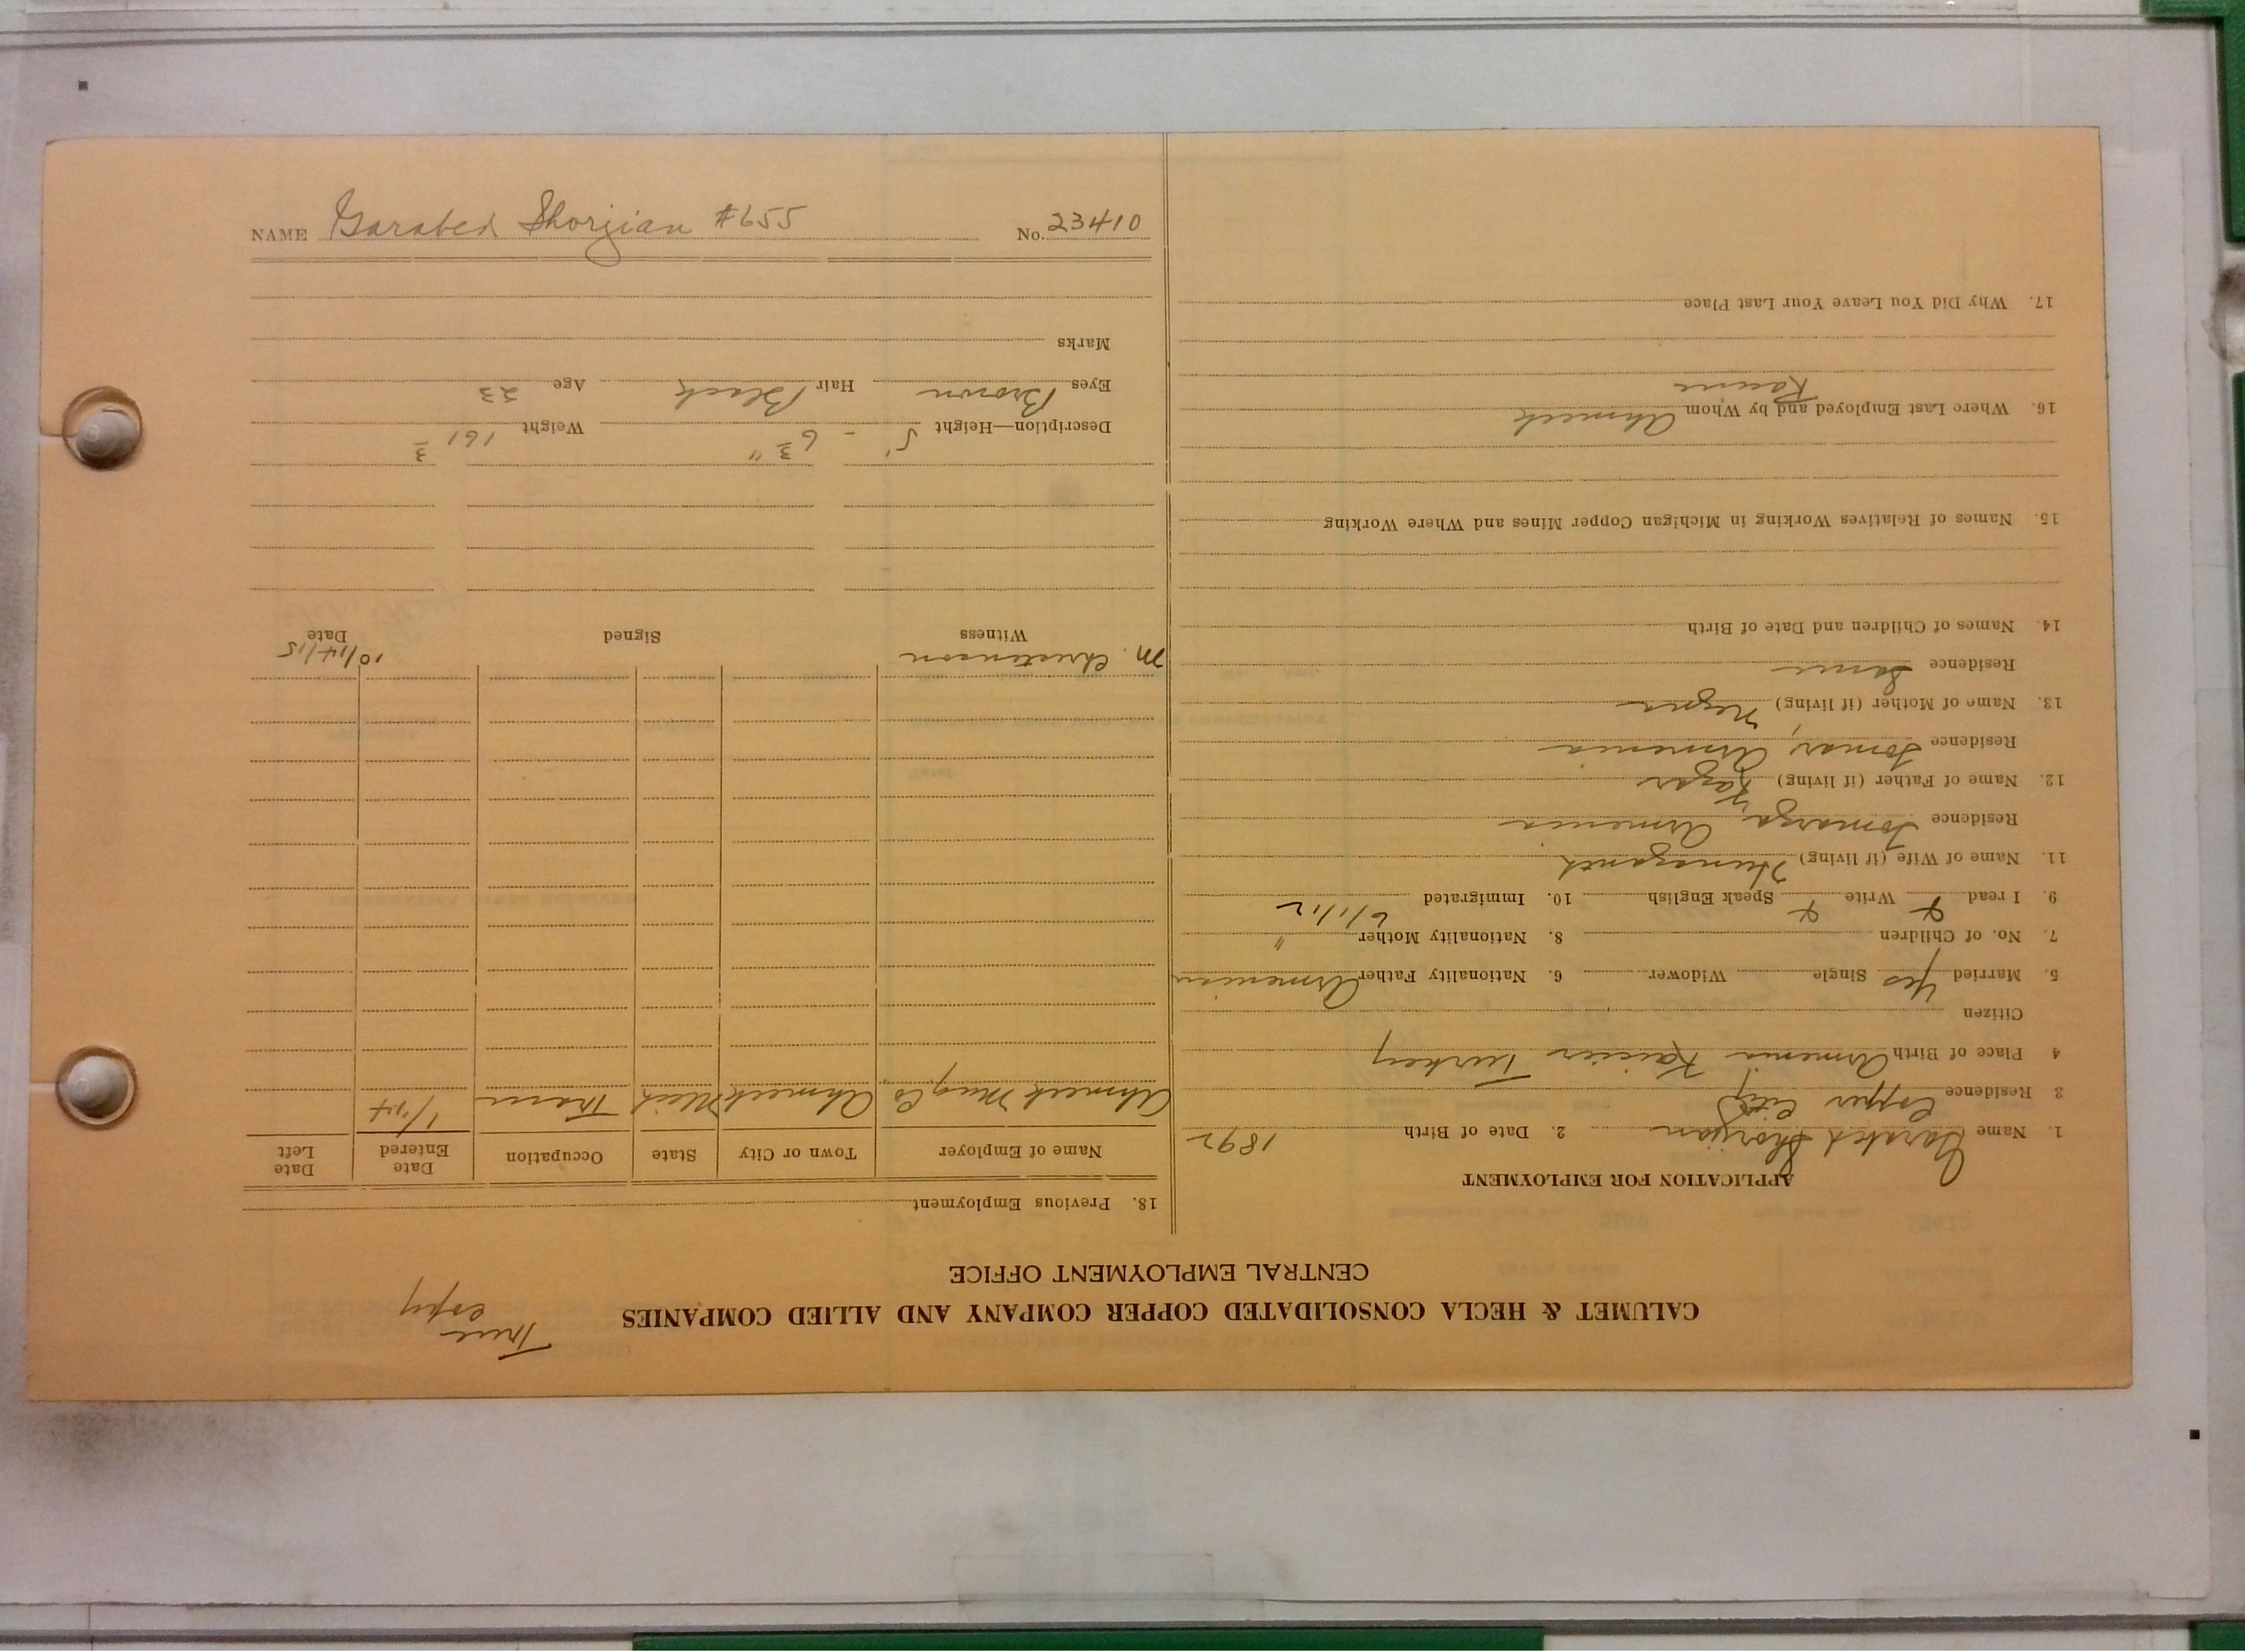 NAME Garabed Shorjian #655 No. 23410
True
copy
CALUMET & HECLA CONSOLIDATED COPPER COMPANY AND ALLIED COMPANIES
CENTRAL EMPLOYMENT OFFICE
APPLICATION FOR EMPLOYMENT
1. Name Garabed Shorjian 2. Date of Birth 1892
3 Residence Copper City
4 Place of Birth Armenia Turkey
Citizen
5. Married Yes Single Widower 6. Nationality Father Armenian
7. No. of Children 8. Nationality Mother "
9. I read Write Speak English 10. Immigrated 6/1/12
11. Name of Wife (if living)
Residence Tomarza Armenia
12. Name of Father (if living)
Residence Armenia
13. Name of Mother (if living)
Residence Same
14. Names of Children and Date of Birth
15. Names of Relatives Working in Michigan Copper Mines and Where Working
16. Where Last Employed and by Whom Ahmeek
17. Why Did You Leave Your Last Place
18. Previous Employment
Name of Employer Town or City State Occupation Date Entered Date Left
Ahmeek Mng. Co. Ahmeek Mich Tram 1/14
M. Christenson 10/14/15
Witness Signed Date
Description—Height 5' - 6 3/4" Weight 161
Eyes Brown Hair Black Age 23
Marks